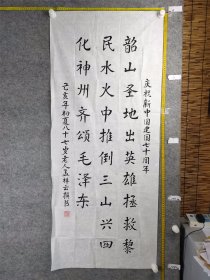 庆祝新中国建国七十周年
韶山圣地出英雄拯救黎
民水火中推倒三山兴四
化神州齐颂毛泽东
己亥年初夏八十七岁老人孟祥云撰书